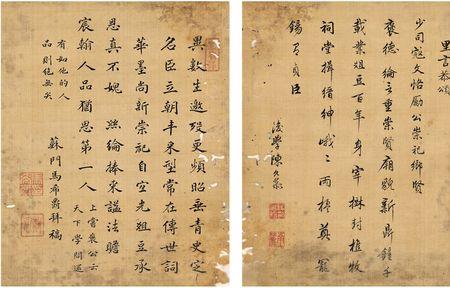 里言恭頌
少司寇文恪勵公崇祀鄉賢
褒德綸言重崇賢廟貌新鼎鐘千
載業俎豆百年身宰樹封植牧
祠堂搢紳峨峨兩楹奠寵
錫有貞臣
後學陳
異數生邀歿更頻昭垂青史定
名臣立朝丰采型常在傳世詞
華墨尚新崇祀自宜光俎豆承
恩真不媿絲綸捧來謚法瞻
宸翰人品猶思第一人
上嘗褒公云
天下學問還
有如他的人
品則絕無矣
蘇門馬希爵拜稿